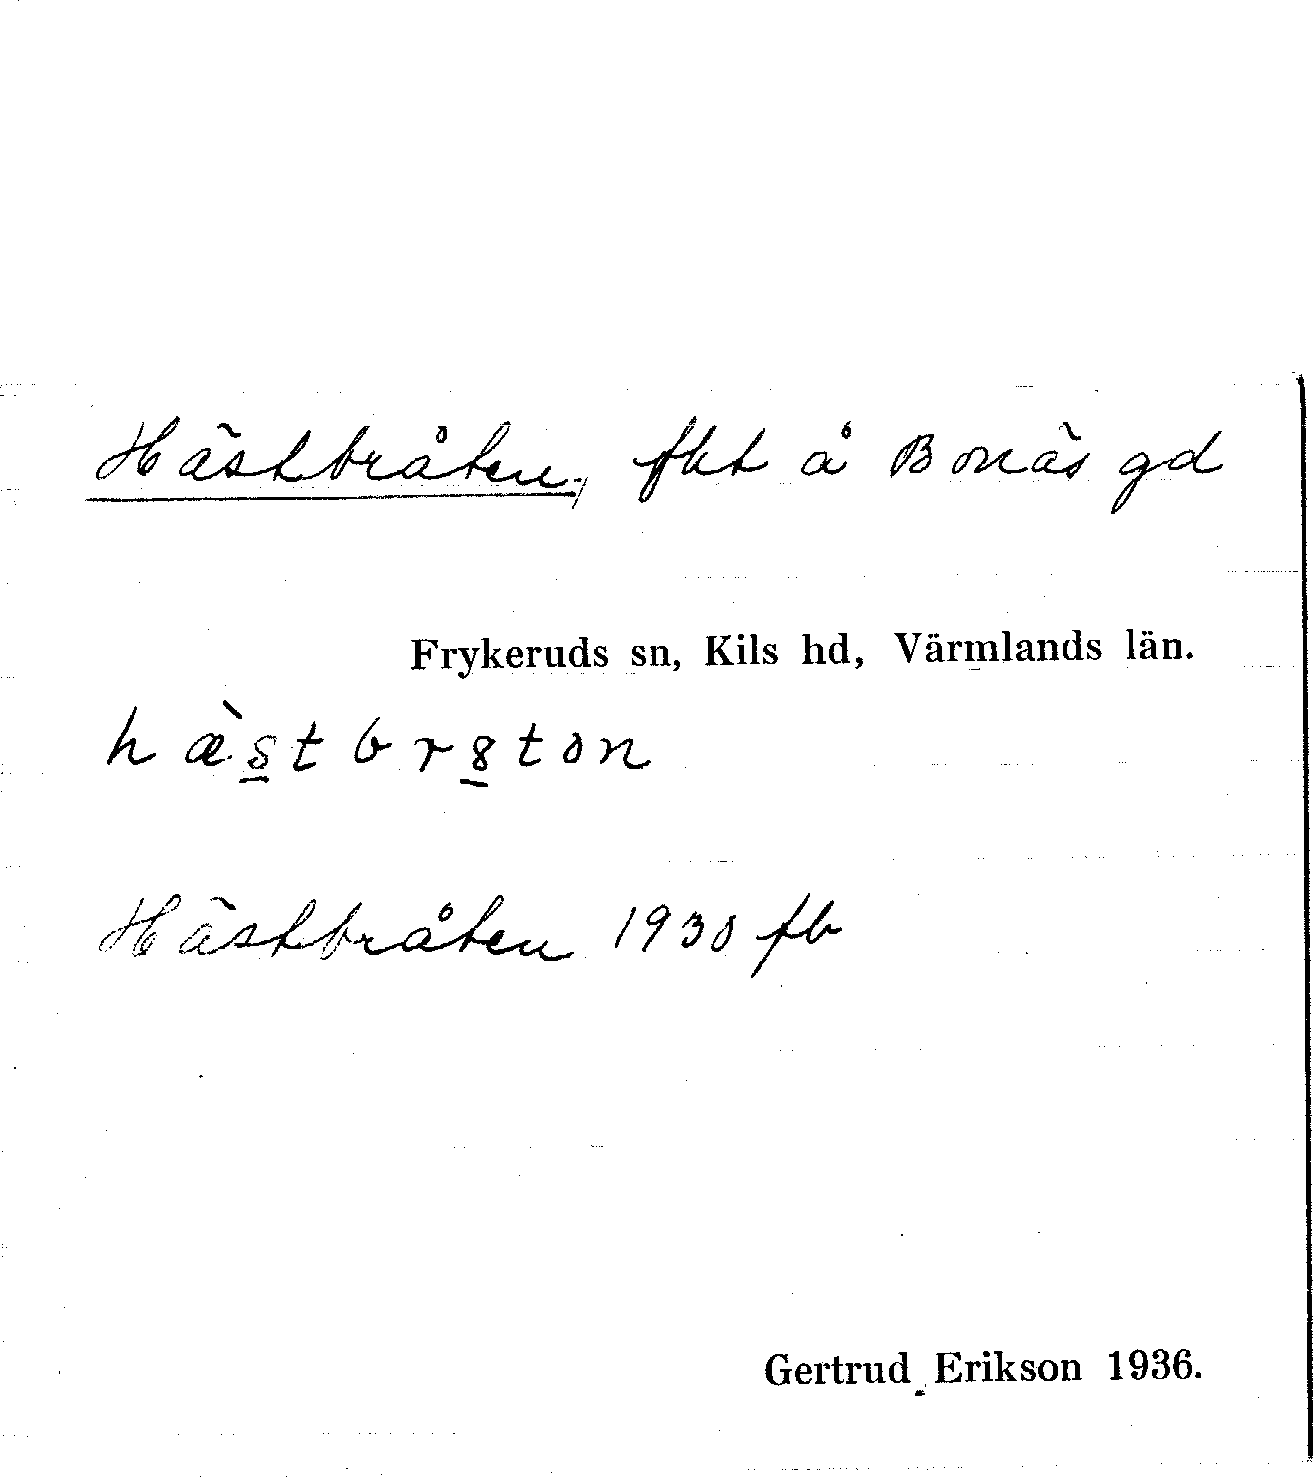 Hästbråten, fkt å Bonäs gd
Frykeruds sn, Kils hd, Värmlands län.
hæ̀s̲tbr8̲tən
Hästbråten 1930 fb
Gertrud Erikson 1936.